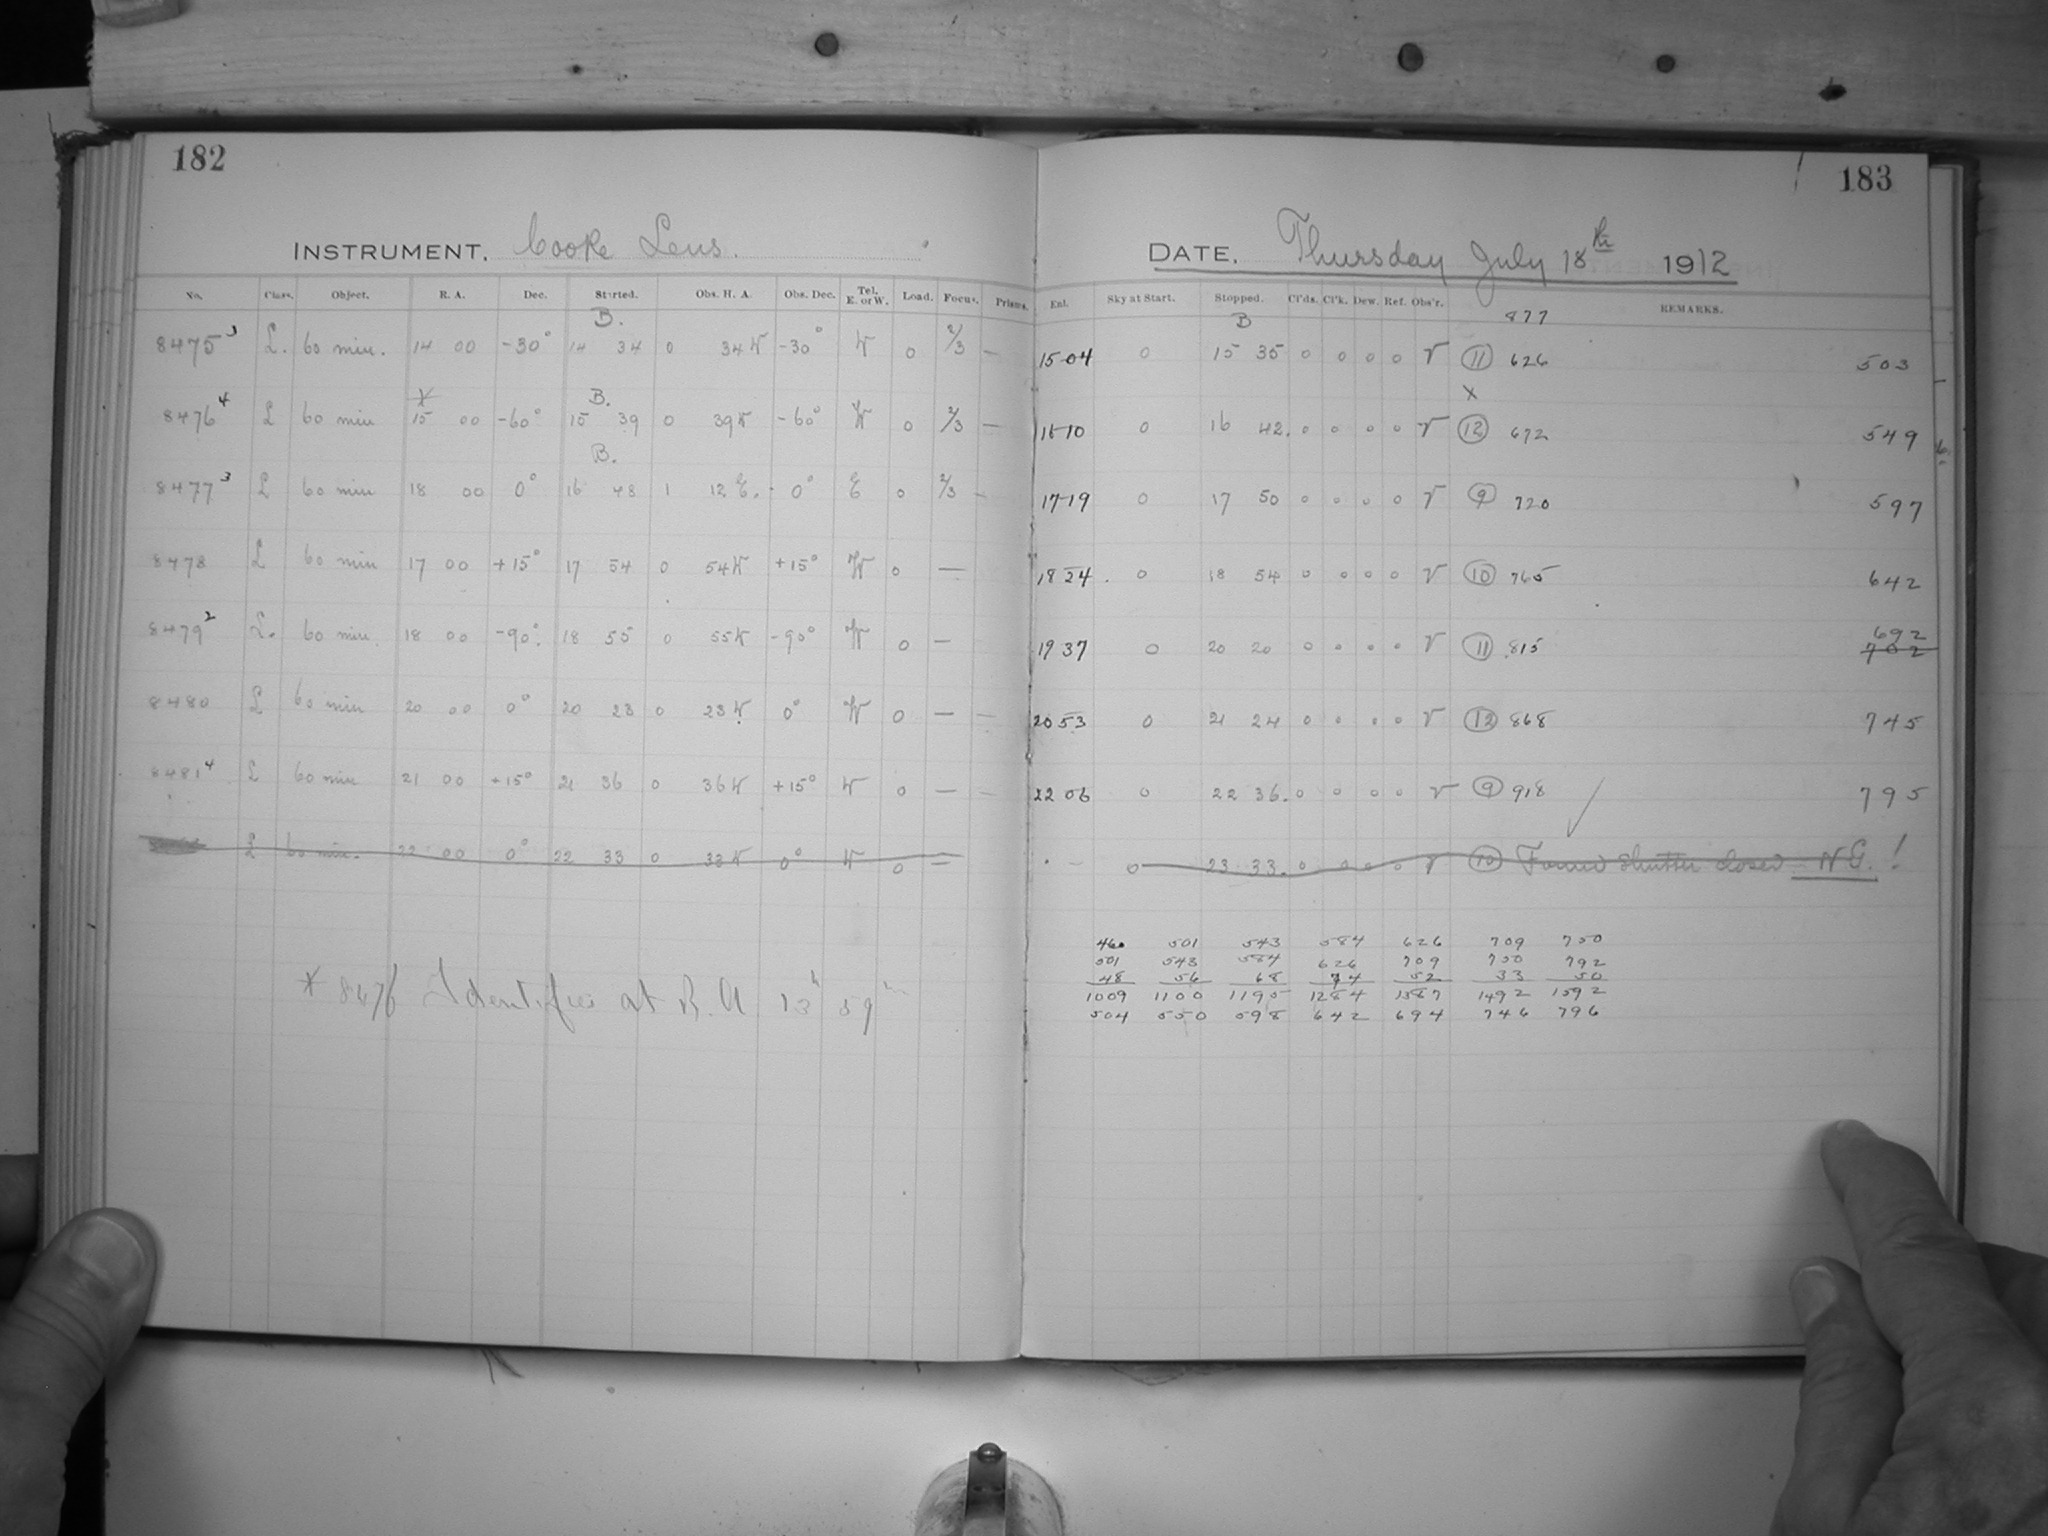 182
183
INSTRUMENT. Cooke Lens.
DATE. Thursday July 18th 1912
No. Class. Object. R. A. Dec. Started. Obs. H. A. Obs. Dec. Tel. E. or W. Load. Focus. Prisms. Ent. Sky at Start. Stopped. Cl'ds. Cl'k. Dew. Ref. Obs'r. REMARKS.
B. B 877
8475 3 L. 60 min. 14 00 -30° 14 34 0 34 W -30° W 0 2/3 — 15 04 0 15 35 0 0 0 0 V 11 626 503
X B. X
8476 4 L 60 min 15 00 -60° 15 39 0 39 W -60° W 0 2/3 — 16 10 0 16 42. 0 0 0 0 V 12 672 549
B.
8477 3 L 60 min 18 00 0° 16 48 1 12 E. 0° E 0 2/3 — 17 19 0 17 50 0 0 0 0 V 9 720 597
8478 L 60 min 17 00 +15° 17 54 0 54 W +15° W 0 — 18 24 0 18 54 0 0 0 0 V 10 765 642
8479 2 L. 60 min. 18 00 -90° 18 55 0 55 W -90° W 0 — 19 37 0 20 20 0 0 0 0 V 11 815 692
702
8480 L 60 min 20 00 0° 20 23 0 23 W 0° W 0 — — 20 53 0 21 24 0 0 0 0 V 12 868 745
8481 4 L 60 min 21 00 +15° 21 36 0 36 W +15° W 0 — — 22 06 0 22 36. 0 0 0 0 V 9 918 795
L 60 min. 22 00 0° 22 33 0 33 W 0° W 0 — 0 23 33. 0 0 0 0 V 10 Found shutter closed N G. !
460 501 543 584 626 709 750
501 543 584 626 709 750 792
48 56 68 74 52 33 50
1009 1100 1195 1284 1387 1492 1592
504 550 598 642 694 746 796
* 8476 Identified at R. A. 13h 59m